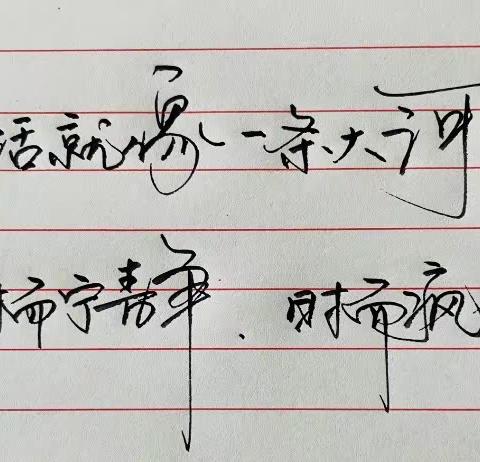 活就像一条大河
时而宁静．时而疯